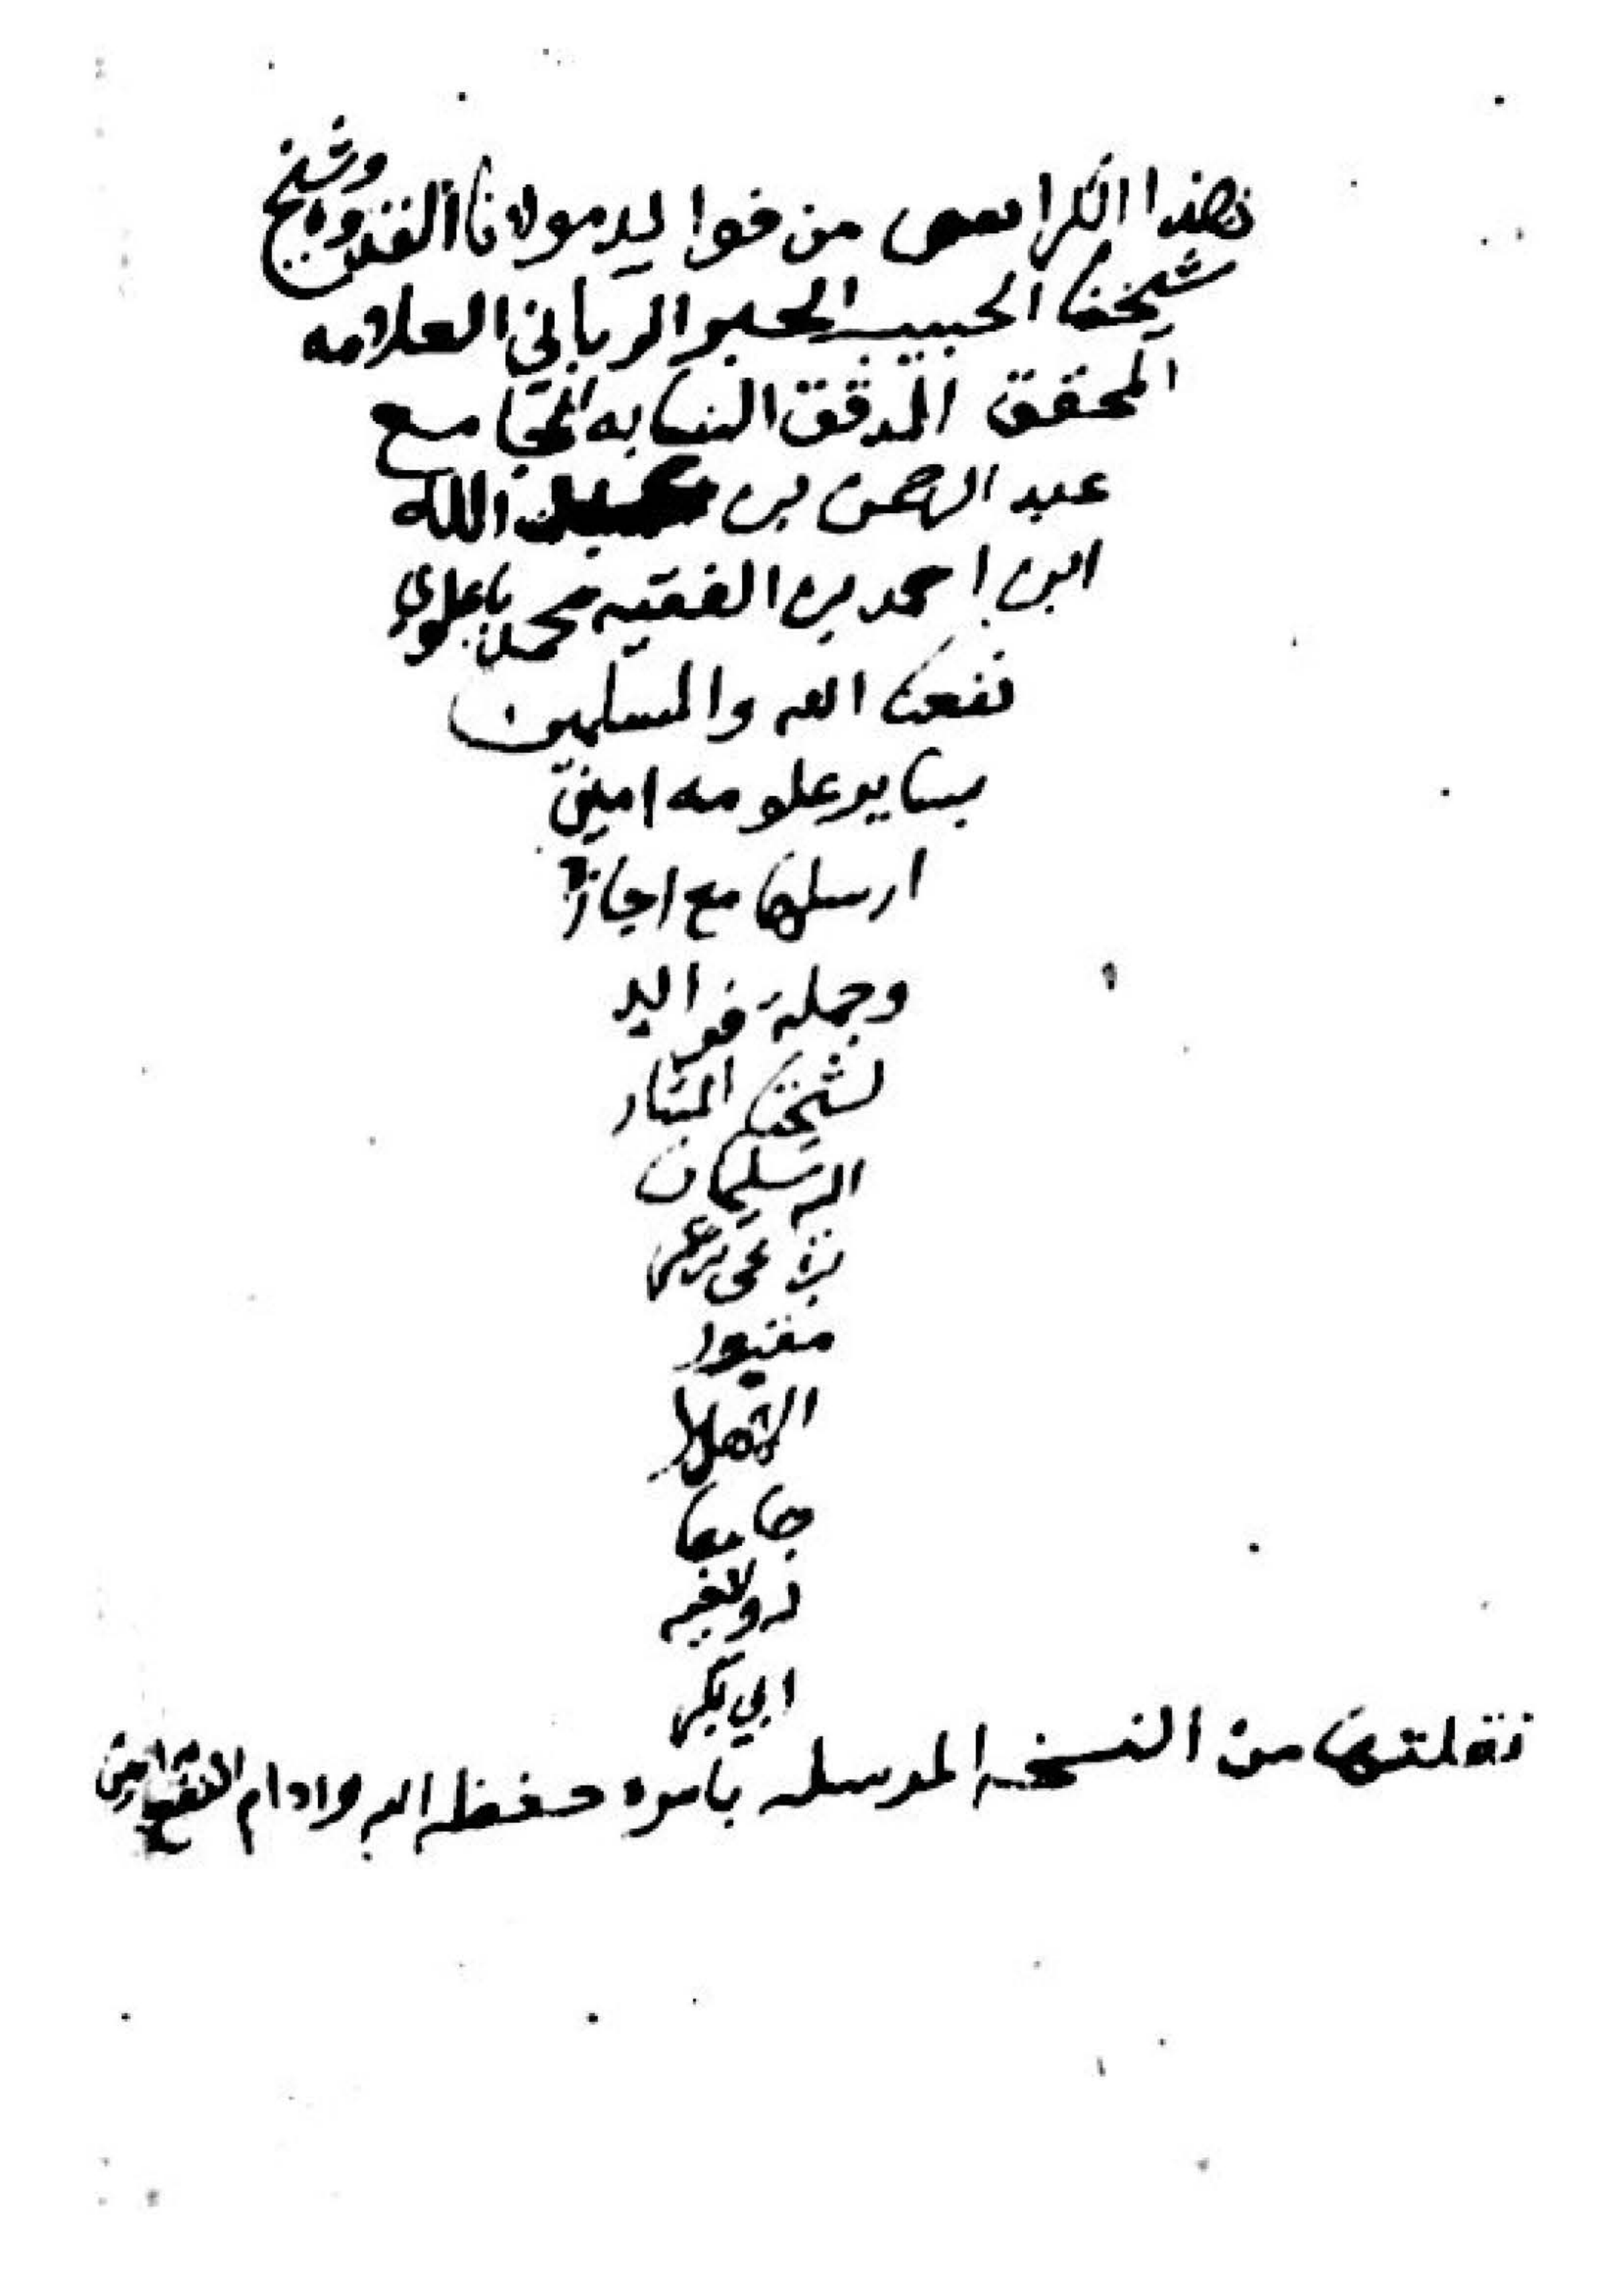 فهذا الكراس من فوايد مولانا القدوة وشيخ
شيخنا الحبيب الحبر الرباني العلامه
المحقق المدقق النسابه الجامع
عبد الرحمن بن عبد الله
ابن احمد بن الفقيه محمد باعلوي
نفعنا الله والمسلمين
بساير علومه امين
ارسلها مع اجازة
وجملة فوايد
لشيخنا
سليمان
بن يحى بن عمر
مقبول
الاهدل
ابي بكر
نقلتها من النسخه المرسله بامره حفظه الله وادام النفع به امين